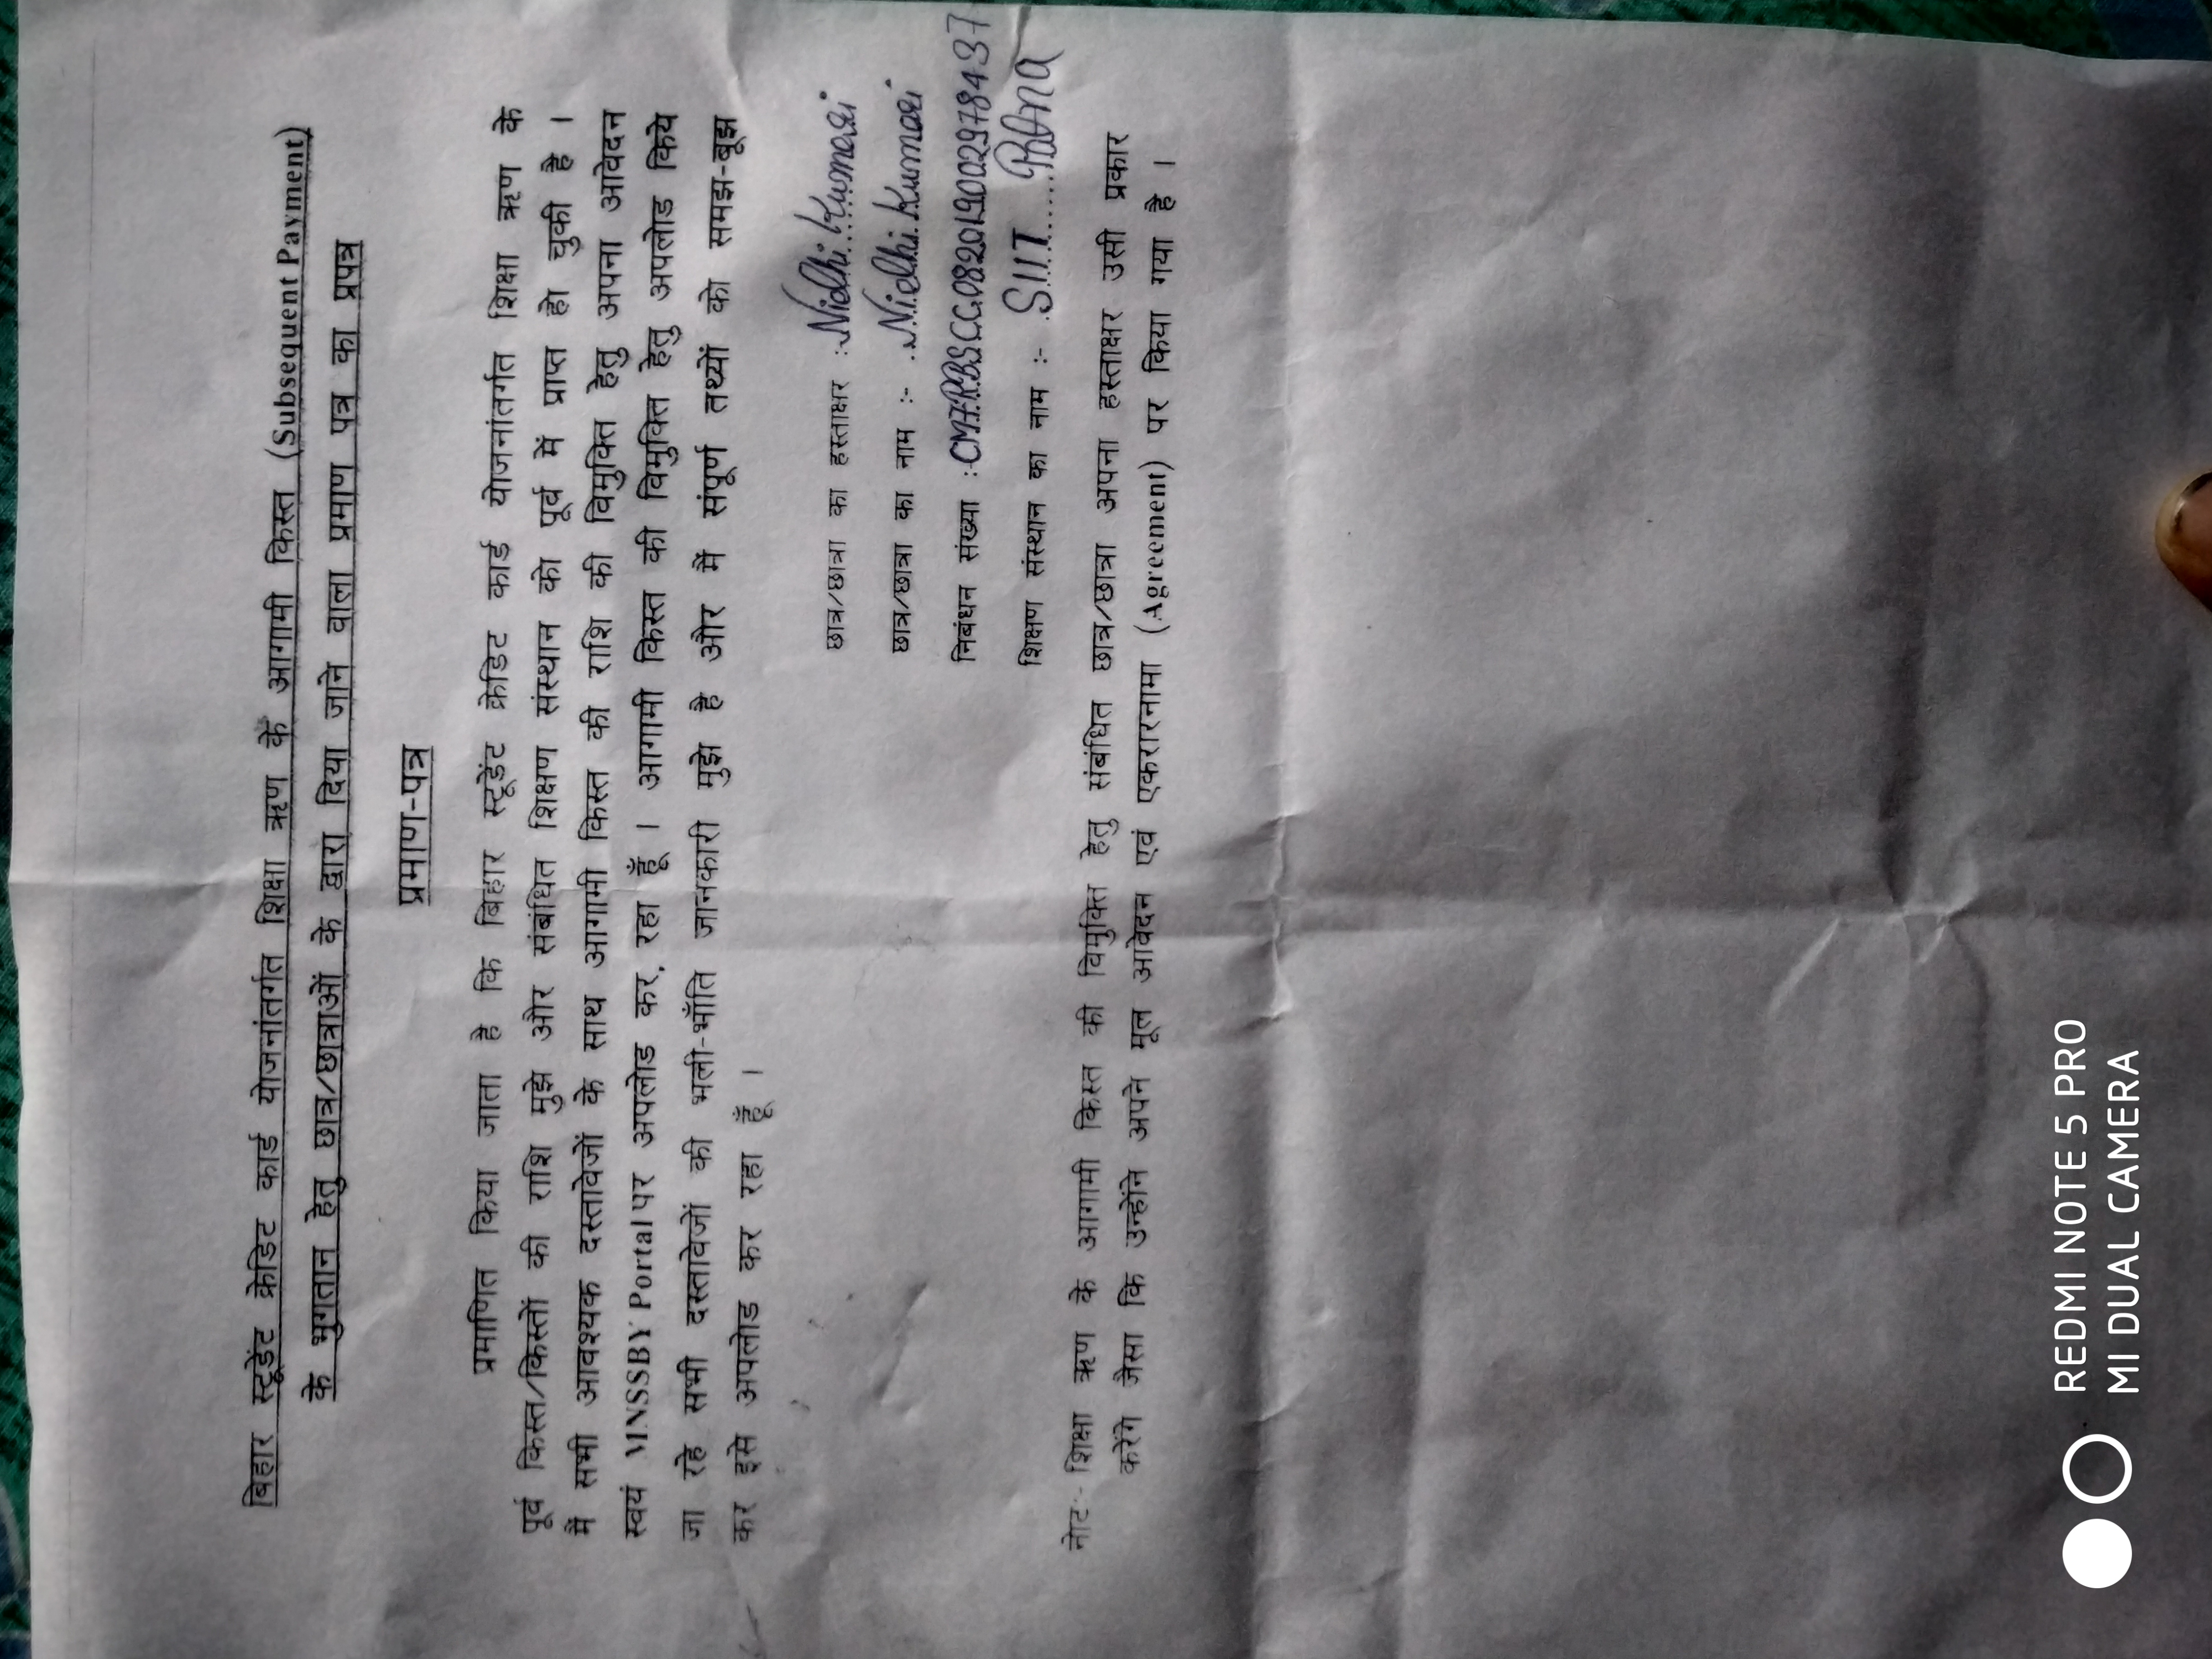 बिहार स्टूडेंट क्रेडिट कार्ड योजनांतर्गत शिक्षा ऋण के आगामी किस्त (Subsequent Payment)
के भुगतान हेतु छात्र/छात्राओं के द्वारा दिया जाने वाला प्रमाण पत्र का प्रपत्र
प्रमाण-पत्र
प्रमाणित किया जाता है कि बिहार स्टूडेंट क्रेडिट कार्ड योजनांतर्गत शिक्षा ऋण के
पूर्व किस्त/किस्तों की राशि मुझे और संबंधित शिक्षण संस्थान को पूर्व में प्राप्त हो चुकी है ।
मैं सभी आवश्यक दस्तावेजों के साथ आगामी किस्त की राशि की विमुक्ति हेतु अपना आवेदन
स्वयं MNSSBY Portal पर अपलोड कर रहा हूँ । आगामी किस्त की विमुक्ति हेतु अपलोड किये
जा रहे सभी दस्तावेजों की भली-भाँति जानकारी मुझे है और मैं संपूर्ण तथ्यों को समझ-बूझ
कर इसे अपलोड कर रहा हूँ ।
छात्र/छात्रा का हस्ताक्षर :- Nidhi Kumari
छात्र/छात्रा का नाम :- Nidhi Kumari
निबंधन संख्या :- BSCC082019002978437
शिक्षण संस्थान का नाम :- SIIT Patna
नोट:- शिक्षा ऋण के आगामी किस्त की विमुक्ति हेतु संबंधित छात्र/छात्रा अपना हस्ताक्षर उसी प्रकार
करेंगे जैसा कि उन्होंने अपने मूल आवेदन एवं एकरारनामा (Agreement) पर किया गया है ।
REDMI NOTE 5 PRO
MI DUAL CAMERA